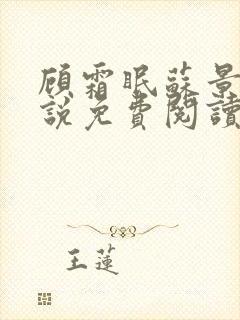 顾霜眠蘇景
說免費閱讀
王蓮